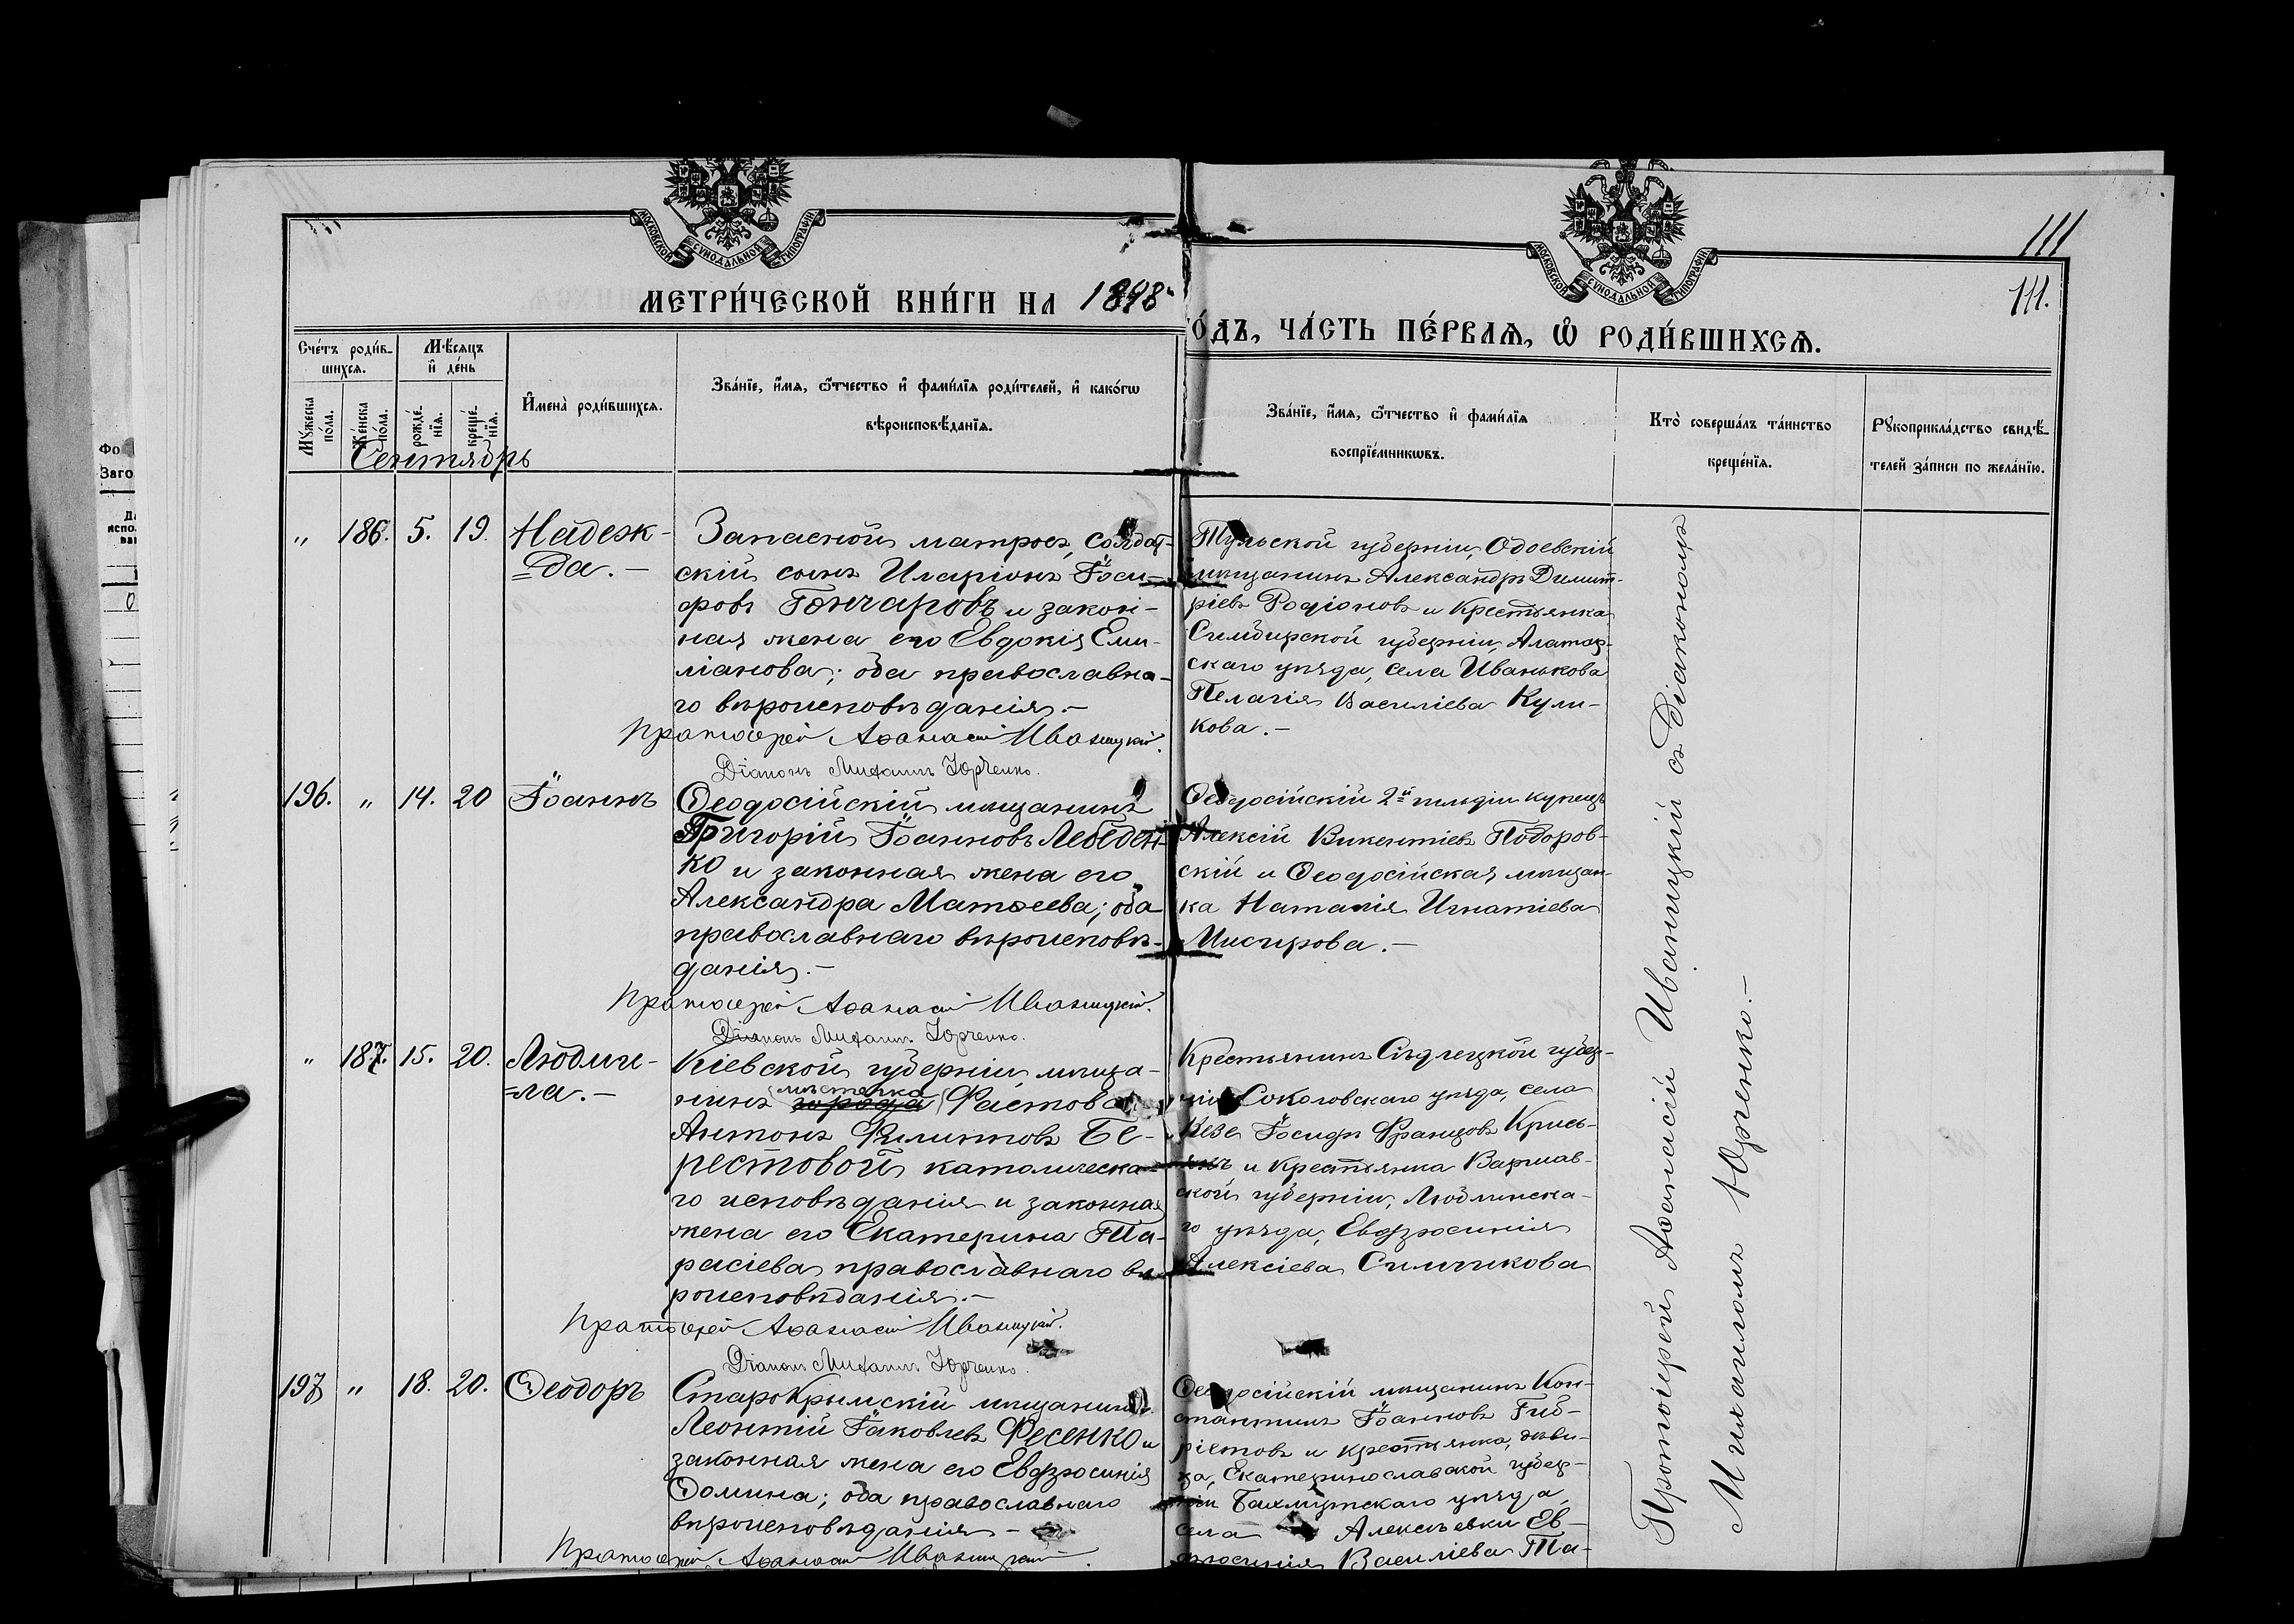 111
111.
МОСКОВСКОЙ СѴНОДАЛЬНОЙ ТИПОГРАФІИ
МОСКОВСКОЙ СѴНОДАЛЬНОЙ ТИПОГРАФІИ
МЕТРИ́ЧЕСКОЙ КНИ́ГИ НА 1898
ГО́ДЪ, ЧА́СТЬ ПЕ́РВАѦ, Ѡ҆ РОДИ́ВШИХСѦ.
Сче́тъ роди́в-
шихсѧ.
Мѣ́сѧцъ
и҆ де́нь
И҆мена̀ роди́вшихсѧ.
Зва́нїе, и҆́мѧ, ѻ҆́тчество и҆ фами́лїѧ роди́телей, и҆ како́гѡ
вѣроисповѣ́данїѧ.
Зва́нїе, и҆́мѧ, ѻ҆́тчество и҆ фами́лїѧ
воспрїе́мникѡвъ.
Кто̀ соверша́лъ та́инство
креще́нїѧ.
Рꙋкоприкла́дство свидѣ́-
телей за́писи по жела́нїю.
Мꙋ́жеска
по́ла.
Же́нска
по́ла.
рожде́-
нїѧ.
креще́-
нїѧ.
Сентябрь
„ 186. 5. 19. Надеж-
=да.-
Запасной матросъ, солдат-
скій сынъ Иларіонъ Іоси-
фовъ Гончаровъ и закон-
ная жена его Евдокія Еми-
ліанова; оба православна-
го вѣроисповѣданія.-
Протоіерей Аѳанасій Иваницкій.
Діаконъ Михаилъ Юрченко.
Тульской губерніи, Одоевскій
мѣщанинъ Александръ Димит-
ріевъ Родіоновъ и Крестьянка
Симбирской губерніи, Алатор-
скаго уѣзда, села Иванькова
Пелагія Василіева Кули-
кова.-
196. „ 14. 20 Іоаннъ
Ѳеодосійскій мѣщанинъ
Григорій Іоанновъ Лебеден-
ко и законная жена его
Александра Матѳеева; оба
православнаго вѣроисповѣ-
данія.-
Протоіерей Аѳанасій Иваницкій.
Діаконъ Михаилъ Юрченко.
Ѳеодосійскій 2й гильдіи купецъ
Алексій Викентіевъ Подоров-
скій и Ѳеодосійская мѣщан-
ка Наталія Игнатіева
Мисирова.-
„ 187. 15. 20. Людми-
=ла.-
Кіевской губерніи, мѣща-
нинъ мѣстечка города Фастова
Антонъ Филиповъ Бе-
рестовой католическа-
го исповѣданія и законная
жена его Екатерина Та-
расіева православнаго вѣ-
роисповѣданія.-
Протоіерей Аѳанасій Иваницкій.
Діаконъ Михаилъ Юрченко.
Крестьянинъ Сѣдлецкой губер-
ніи Соколовскаго уѣзда, села
Іосифъ Францовъ
и Крестьянка Варшав-
ской губерніи, Люблинска-
го уѣзда, Евфросинія
Алексіева
197 „ 18. 20. Ѳеодоръ
СтароКрымскій мѣщанинъ
Леонтій Іаковлевъ Фесенко и
законная жена его Евфросинія
Ѳомина; оба православнаго
вѣроисповѣданія -
Протоіерей Аѳанасій Иваницкій.
Ѳеодосійскій мѣщанинъ Кон-
стантинъ Іоанновъ
и крестьянка, дѣви-
ца, Екатеринославской губер-
ніи Бахмутскаго уѣзда,
села Алексѣевки Ев-
фросинія Василіева Та-
Протоіерей Аѳанасій Иваницкій съ Діакономъ
Михаиломъ Юрченко.-